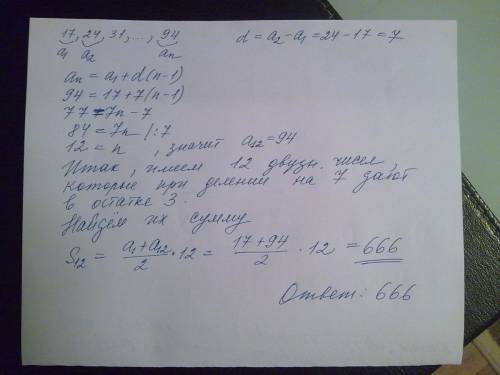 17, 24, 31, ..., 94 d = a₂ - a₁ = 24 - 17 = 7
a₁ a₂ aₙ
aₙ = a₁ + d(n-1)
94 = 17 + 7(n-1)
77 = 7n - 7
84 = 7n |:7
12 = n , значит a₁₂ = 94
Итак, имеем 12 двузн. чисел,
которые при делении на 7 дают
в остатке 3.
Найдём их сумму
S₁₂ = (a₁ + a₁₂)/2 · 12 = (17 + 94)/2 · 12 = 666
Ответ: 666